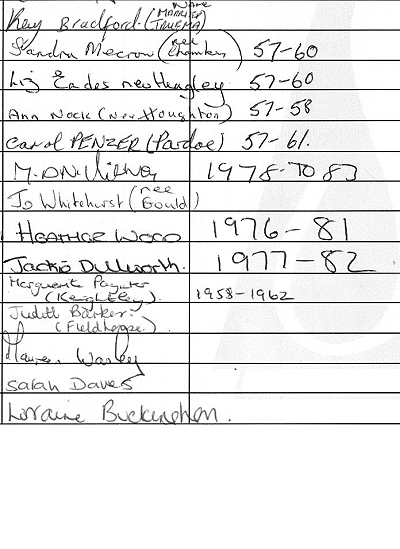 Kay Bradford (MARRIED NAME TRUEMA)
Sandra Mecrow (nee Chambers) 57-60
Liz Eades nee Heagley 57-60
Ann Nock (Nee Houghton) 57-58
Carol PENZER (Pardoe) 57-61.
1978 TO 83
Jo Whitehurst (nee Gould)
HEATHER WOOD 1976-81
Jackie Dullworth. 1977-82
Marguerite Paynter
(Keighley). 1958-1962
Judith Barker.
(Fieldhouse).
Maureen Warley
Sarah Davies
Lorraine Buckingham.